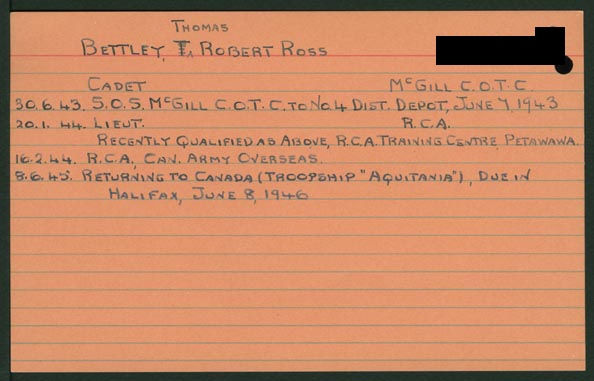 Thomas
Bettley, T. Robert Ross
Cadet McGill C.O.T.C.
30.6.43. S.O.S. McGill C.O.T.C. to No. 4 Dist. Depot, June 7, 1943
20.1.44. Lieut. R.C.A.
Recently Qualified as Above, R.C.A. Training Centre, Petawawa.
16.2.44. R.C.A., Can. Army Overseas.
8.6.45. Returning to Canada (Troopship "Aquitania"), Due in
Halifax, June 8, 1946